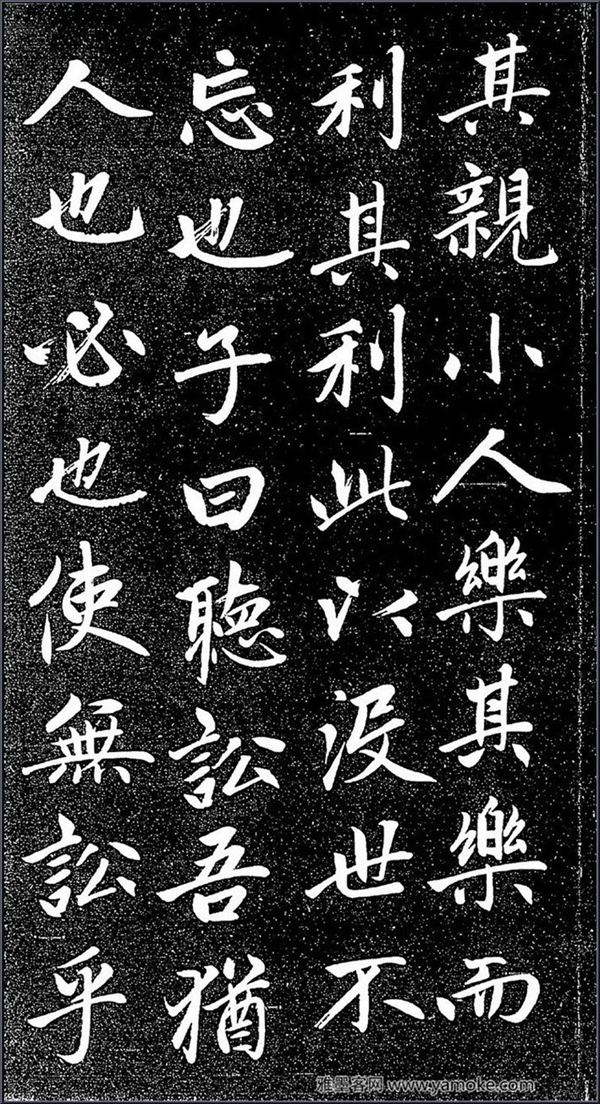 其親小人樂其樂而
利其利此以沒世不
忘也子曰聽訟吾猶
人也必也使無訟乎
雅墨客网 www.yamoke.com